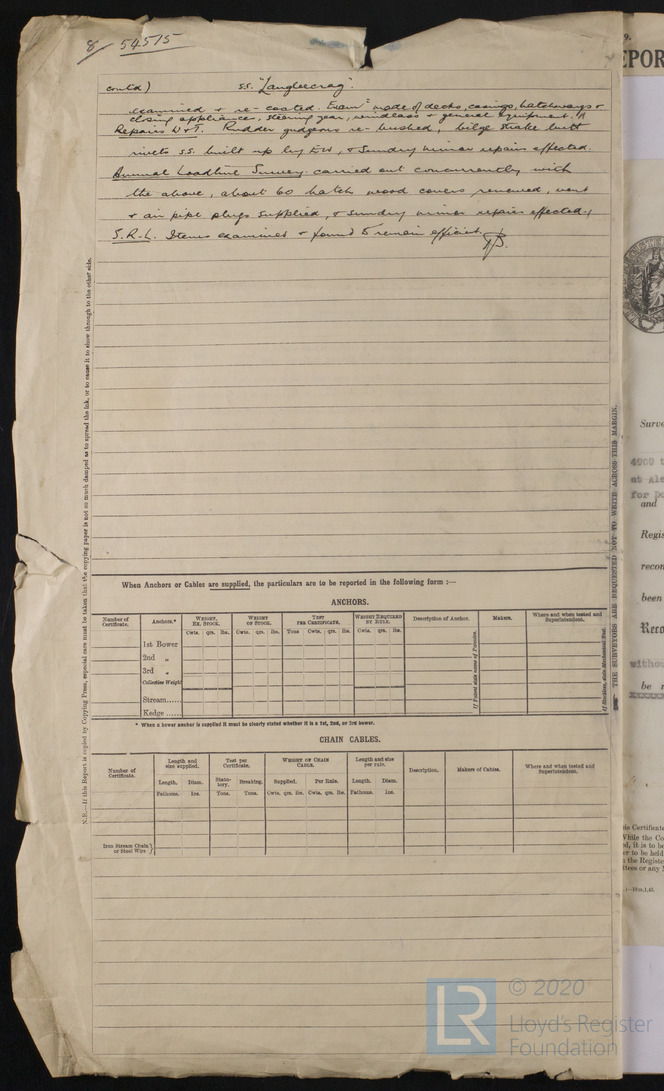 8 54515
contd) s.s. "Langleecrag".
examined & re-coated. Examn made of decks, casings, hatchways &
closing appliances, steering gear, windlass & general equipment.
Repairs W&T. Rudder gudgeons re-bushed, bilge strake butt
rivets S.S. built up by EW, & sundry minor repairs effected.
Annual Loadline Survey: carried out concurrently with
the above, about 60 hatch wood covers renewed, vent
& air pipe plugs supplied, & sundry minor repairs effected.
S.R.L. Items examined & found to remain efficient.
N.B.—If this Report is copied by Copying Press, especial care must be taken that the copying paper is not so much damped as to spread the ink, or to cause it to show through to the other side.
THE SURVEYORS ARE REQUESTED NOT TO WRITE ACROSS THIS MARGIN.
When Anchors or Cables are supplied, the particulars are to be reported in the following form :—
ANCHORS.
Number of Certificate. Anchors.* Weight, Ex. Stock. Weight of Stock. Test per Certificate. Weight Required by Rule. Description of Anchor. Makers. Where and when tested and Superintendent.
Cwts. qrs. lbs. Cwts. qrs. lbs. Tons Cwts. qrs. lbs. Cwts. qrs. lbs.
1st Bower
2nd „
3rd „
Collective Weight
Stream......
Kedge ......
If Patent state name of Patentee.
* When a bower anchor is supplied it must be clearly stated whether it is a 1st, 2nd, or 3rd bower.
CHAIN CABLES.
Number of Certificate. Length and size supplied. Test per Certificate. Weight of Chain Cable. Length and size per rule. Description. Makers of Cables. Where and when tested and Superintendent.
Length. Diam. Statutory. Breaking. Supplied. Per Rule. Length. Diam.
Fathoms. Ins. Tons. Tons. Cwts. qrs. lbs. Cwts. qrs. lbs. Fathoms. Ins.
Iron Stream Chain or Steel Wire }
LR © 2020
Lloyd's Register
Foundation
9.
EPOR
Surve
4969 t
at Ale
and
Regis
recon
been
Reco
witho
be r
xxxxx